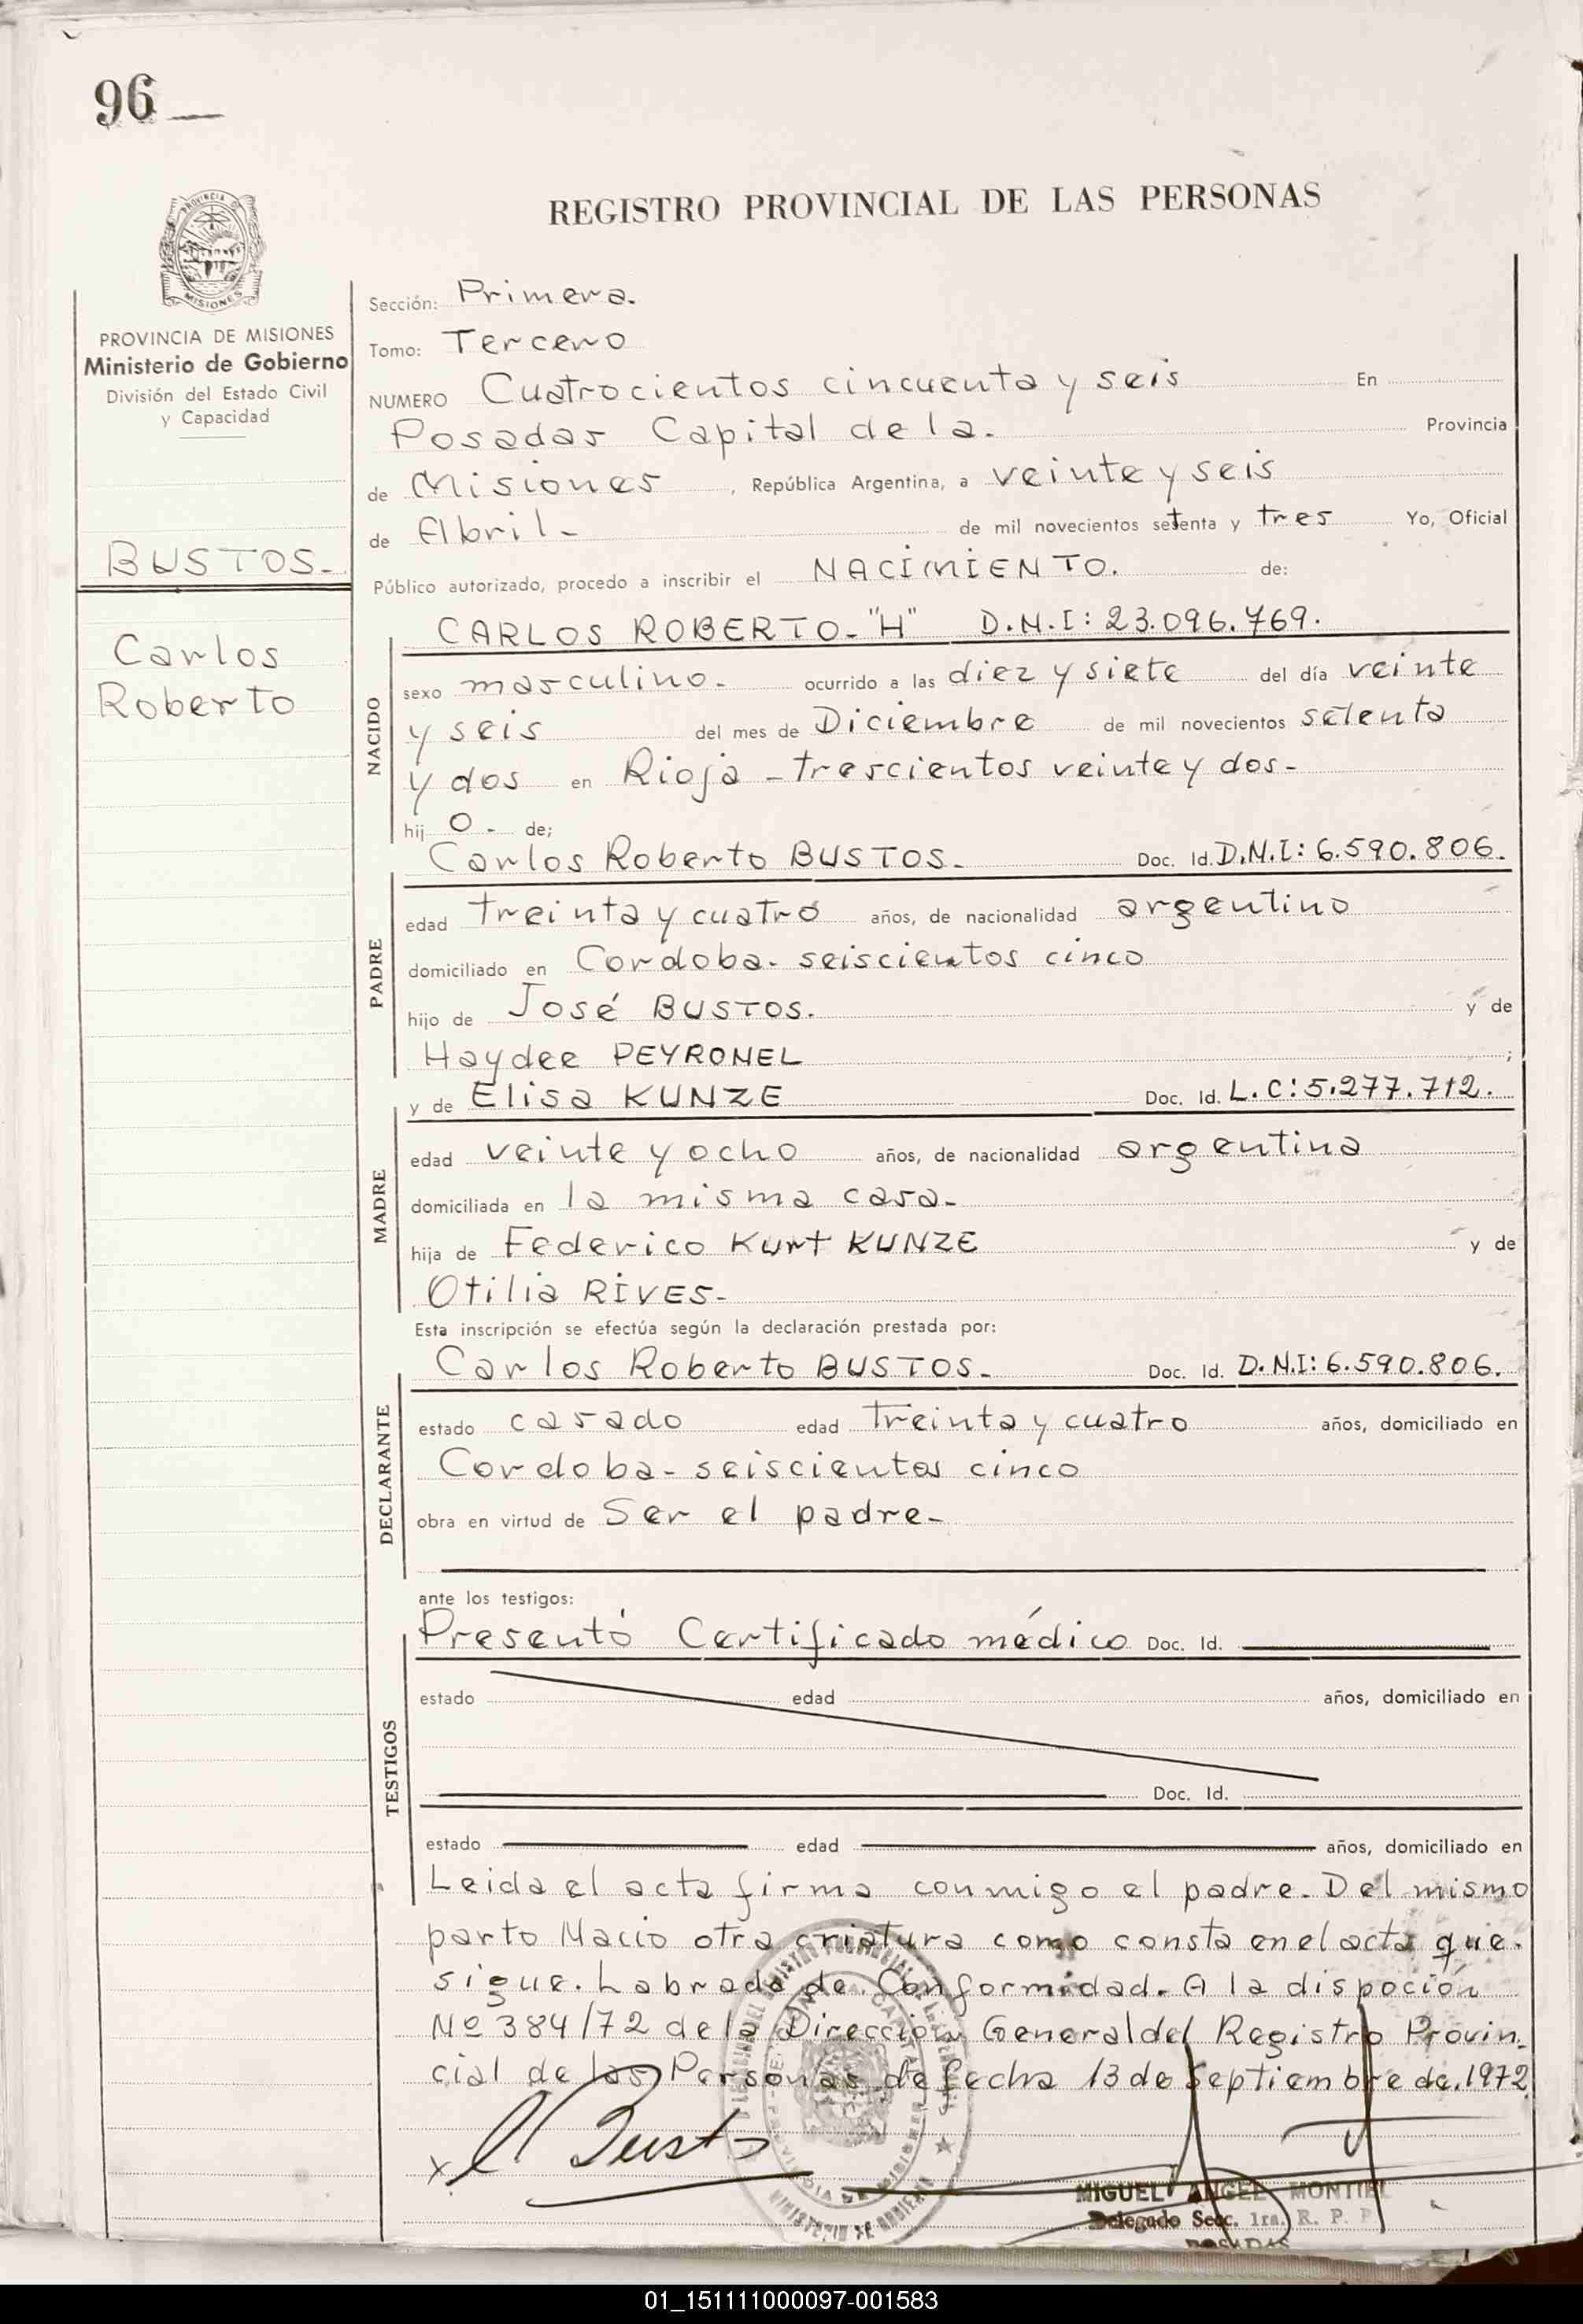 96
REGISTRO PROVINCIAL DE LAS PERSONAS
PROVINCIA DE MISIONES
Ministerio de Gobierno
División del Estado Civil
y Capacidad
BUSTOS.
Carlos
Roberto
Sección: Primera.
Tomo: Tercero
NUMERO Cuatrocientos cincuenta y seis En
Posadas Capital de la. Provincia
de Misiones, República Argentina, a veinte y seis
de Abril- de mil novecientos setenta y tres Yo, Oficial
Público autorizado, procedo a inscribir el NACIMIENTO. de:
NACIDO
CARLOS ROBERTO-"H" D.N.I: 23.096.769.
sexo masculino- ocurrido a las diez y siete del día veinte
y seis del mes de Diciembre de mil novecientos setenta
y dos en Rioja - trescientos veinte y dos-
hij o - de;
PADRE
Carlos Roberto BUSTOS. Doc. Id. D.N.I: 6.590.806.
edad treinta y cuatro años, de nacionalidad argentino
domiciliado en Cordoba- seiscientos cinco
hijo de José BUSTOS. y de
Haydee PEYRONEL ;
MADRE
y de Elisa KUNZE Doc. Id. L.C: 5.277.712.
edad veinte y ocho años, de nacionalidad argentina
domiciliada en la misma casa-
hija de Federico Kurt KUNZE y de
Otilia RIVES-
Esta inscripción se efectúa según la declaración prestada por:
DECLARANTE
Carlos Roberto BUSTOS. Doc. Id. D.N.I: 6.590.806.
estado casado edad treinta y cuatro años, domiciliado en
Cordoba- seiscientos cinco
obra en virtud de Ser el padre-
ante los testigos:
TESTIGOS
Presentó Certificado médico Doc. Id.
estado edad años, domiciliado en
Doc. Id.
estado edad años, domiciliado en
Leida el acta firma conmigo el padre. Del mismo
parto Nacio otra criatura como consta en el acta que.
sigue. Labrada de Conformidad. A la dispoción
Nº 384/72 de la Dirección General del Registro Provin.
cial de las Personas de fecha 13 de Septiembre de. 1972.
x Bustos
MIGUEL ANGEL MONTIEL
Delegado Secc. 1ra. R. P. P.
POSADAS
01_151111000097-001583